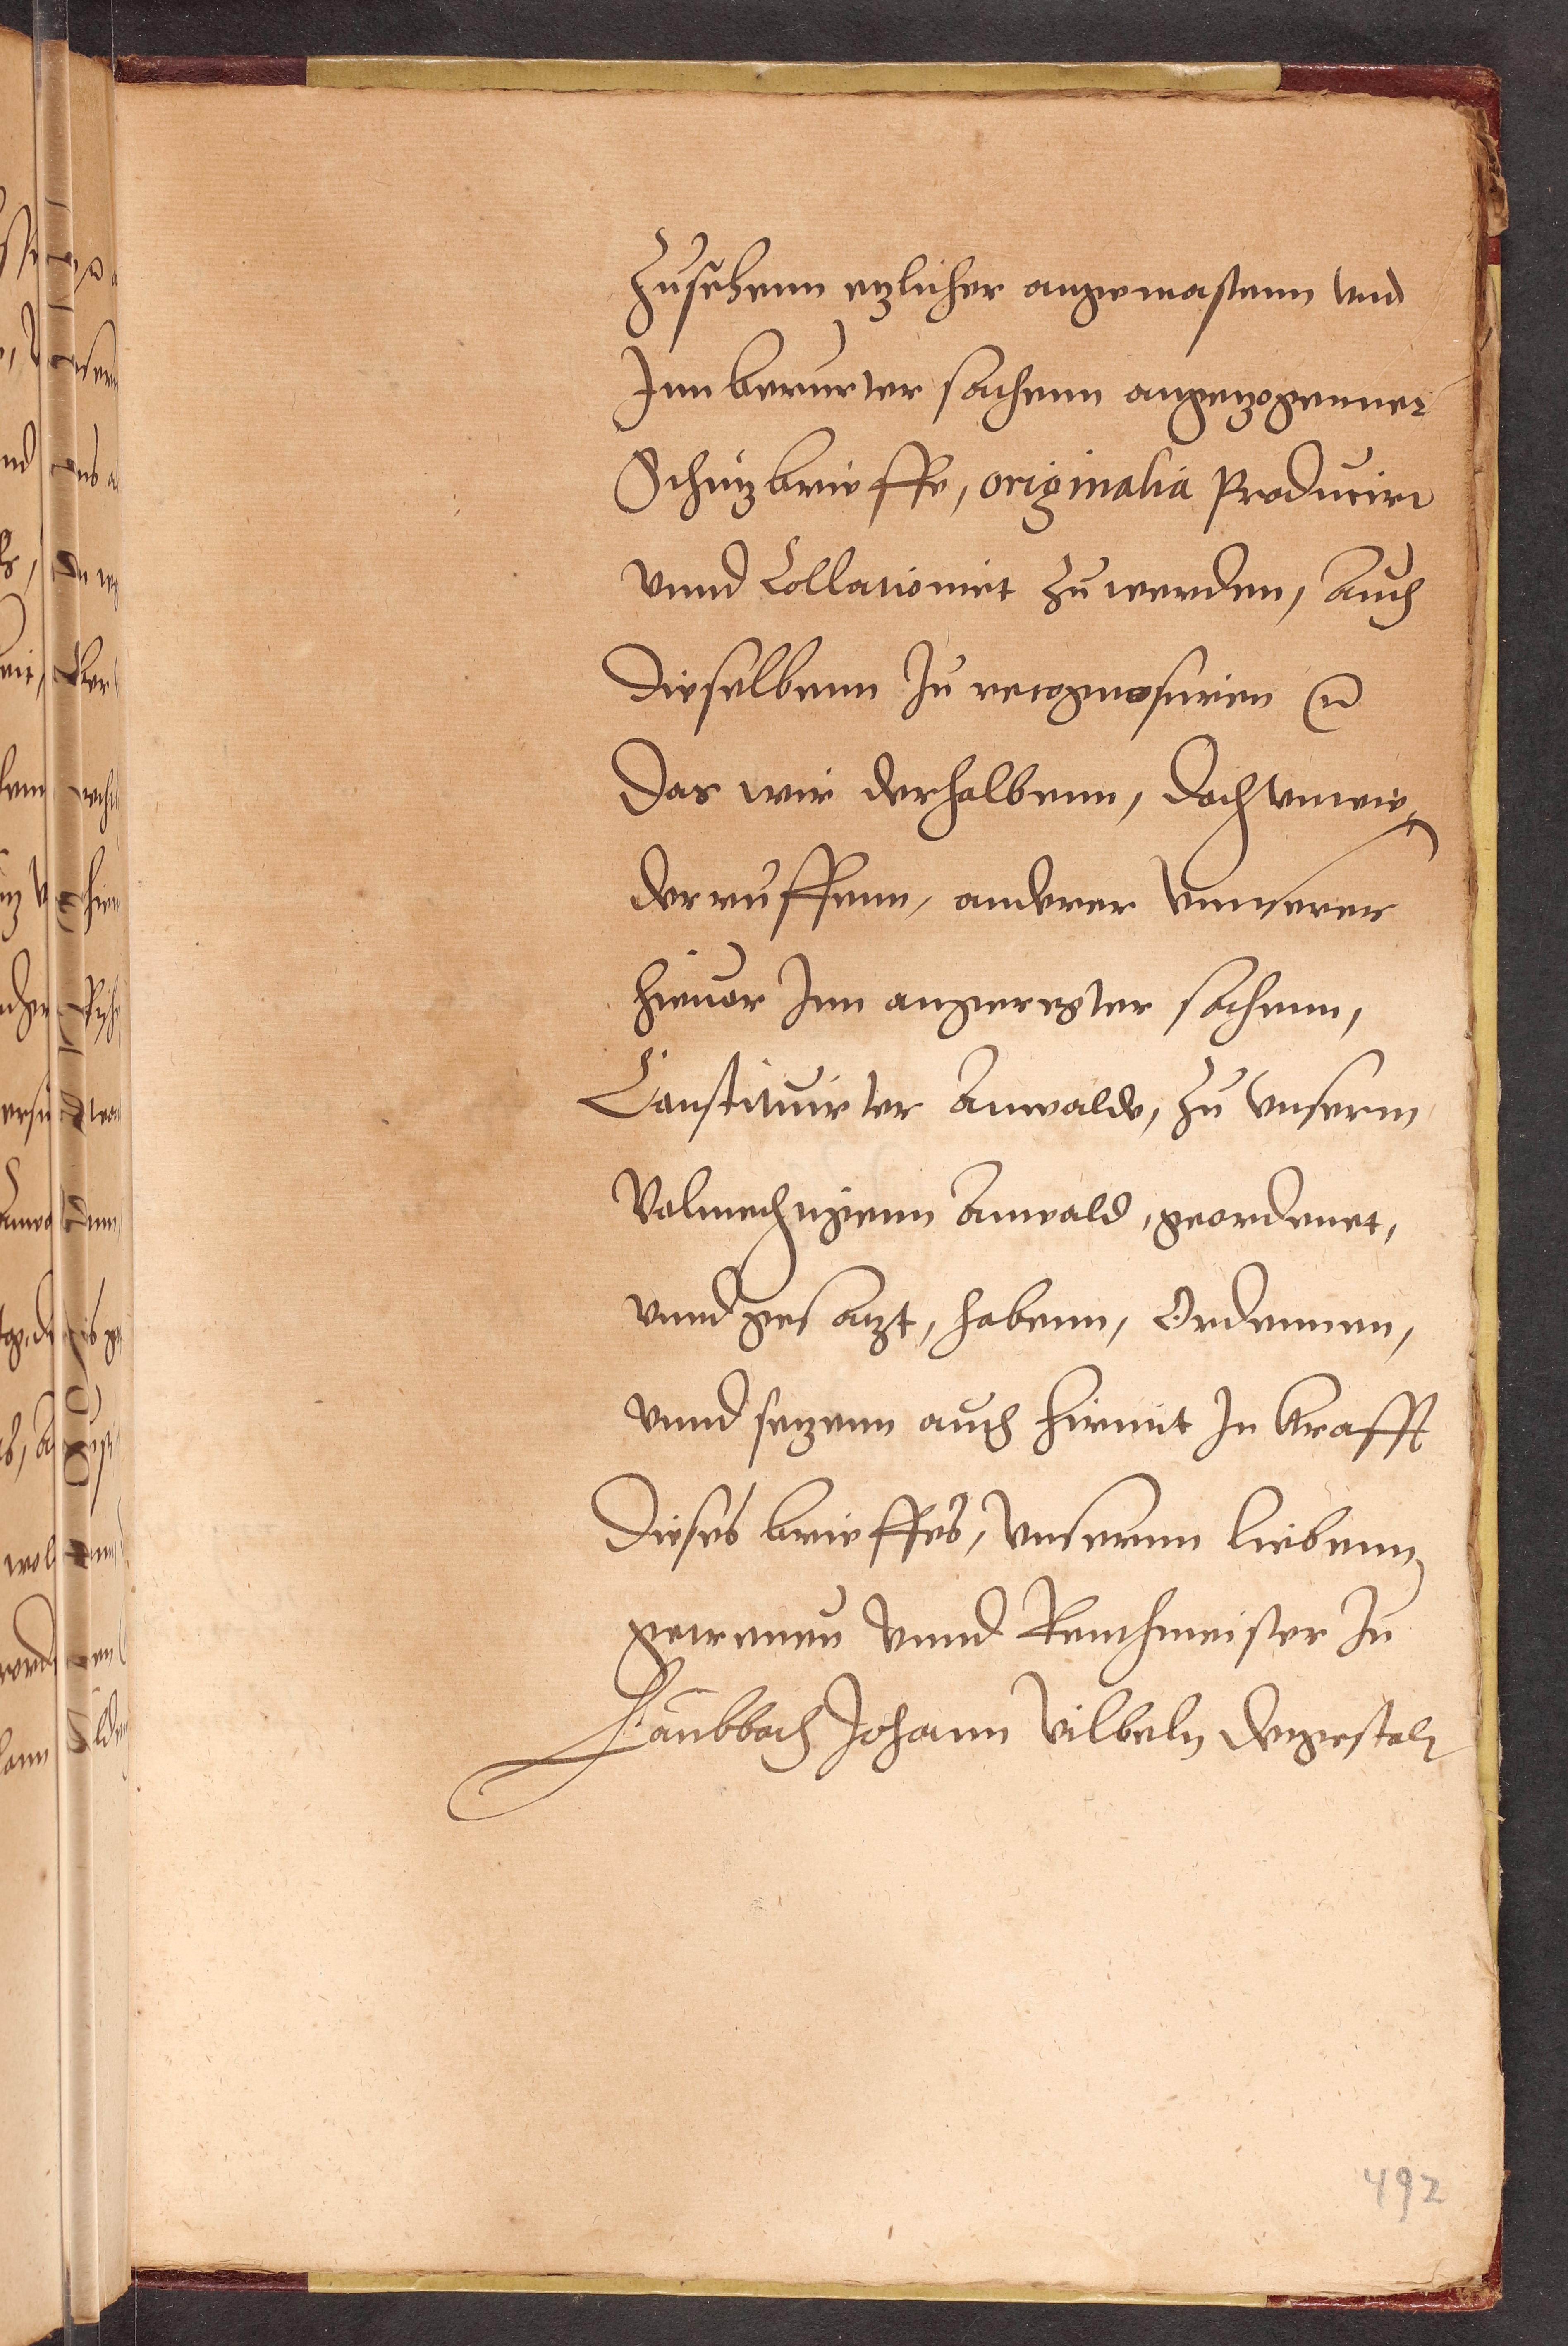 Zusehenn etzlicher angemastenn vnd
Inn berurter sachenn angezogenner
Schutzbrieffe, originalia Produciren
vnnd Collationirt zu werden, Auch
dieselbenn zu recognosciren &c.
Das wir derhalbenn, doch vnwie-
derruffenn, anderer vnnserer
hieuor Inn angeregter sachenn,
Constituirter Anwalde, zu vnserm
Volmechtigenn Anwald, geordenet,
vnnd gesatzt, habenn, Ordennen,
vnnd setzenn auch hirmit In krafft
dieses brieffes, vnsernn liebenn
getrewen vnnd Rentmeister zu
Laubbach Johann Vilbeln dergestalt
492